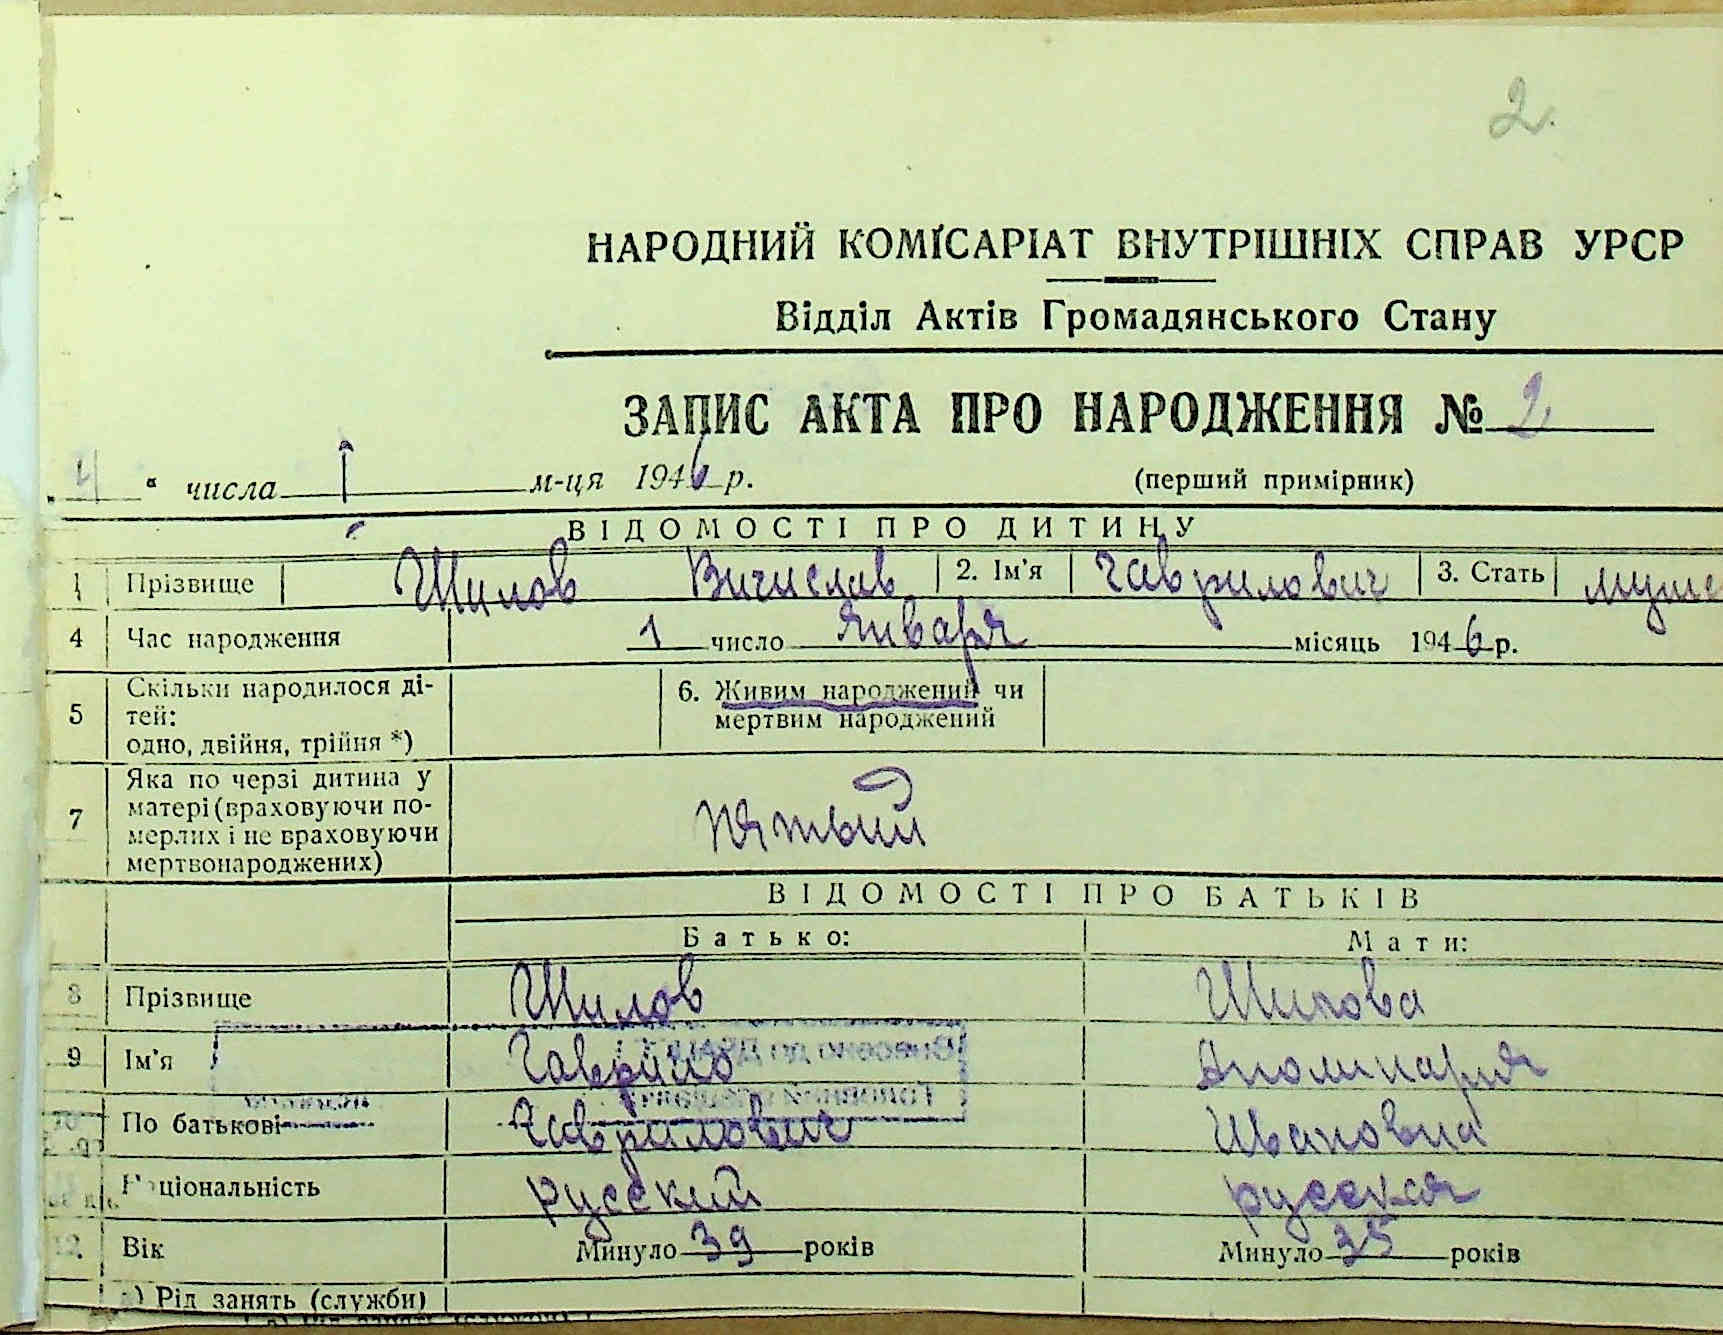 2.
НАРОДНИЙ КОМІСАРІАТ ВНУТРІШНІХ СПРАВ УРСР
Відділ Актів Громадянського Стану
ЗАПИС АКТА ПРО НАРОДЖЕННЯ № 2
„ 4 “ числа I м-ця 1946 р. (перший примірник)
ВІДОМОСТІ ПРО ДИТИНУ
1 Прізвище Шилов Вичислав 2. Ім'я Гаврилович 3. Стать
4 Час народження 1 число Января місяць 1946 р.
5 Скільки народилося ді-
тей:
одно, двійня, трійня *)
6. Живим народжений чи
мертвим народжений
7 Яка по черзі дитина у
матері (враховуючи по-
мерлих і не враховуючи
мертвонароджених)
пятый
ВІДОМОСТІ ПРО БАТЬКІВ
Батько: Мати:
8 Прізвище Шилов Шилова
9 Ім'я Гаврило Аполинария
10 По батькові Гаврилович Ивановна
Національність русский русская
12. Вік Минуло 39 років Минуло 35 років
а) Рід занять (служби)